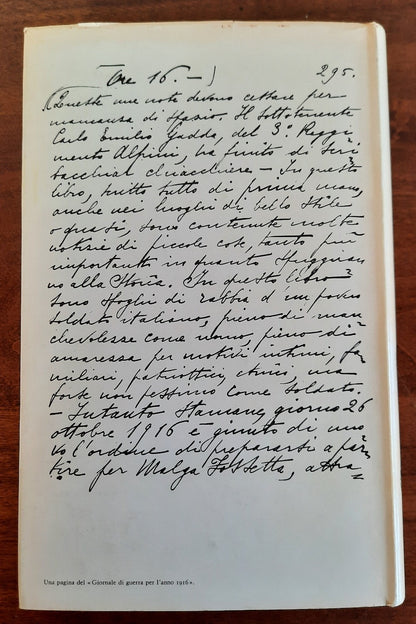 (Ore 16. —) 295.
(Queste mie note devono cessare per
mancanza di spazio. Il sottotenente
Carlo Emilio Gadda, del 3.° Reggi
mento Alpini, ha finito di scri
bacchiar chiacchiere — In questo
libro, scritto tutto di prima mano,
anche nei luoghi di bello stile
o quasi, sono contenute molte
notizie di piccole cose, tanto più
importanti in quanto sfuggiran
no alla Storia. In questo libro
sono sfoghi di rabbia d'un povero
soldato italiano, pieno di man
chevolezze come uomo, pieno di
amarezza per motivi intimi, fa-
miliari, patriottici, etnici, ma
forse non pessimo come soldato.
— Intanto stamane, giorno 26
ottobre 1916 è giunto di nuo
vo l'ordine di prepararsi a par-
tire per Malga Fossetta, attra-
Una pagina del «Giornale di guerra per l'anno 1916».